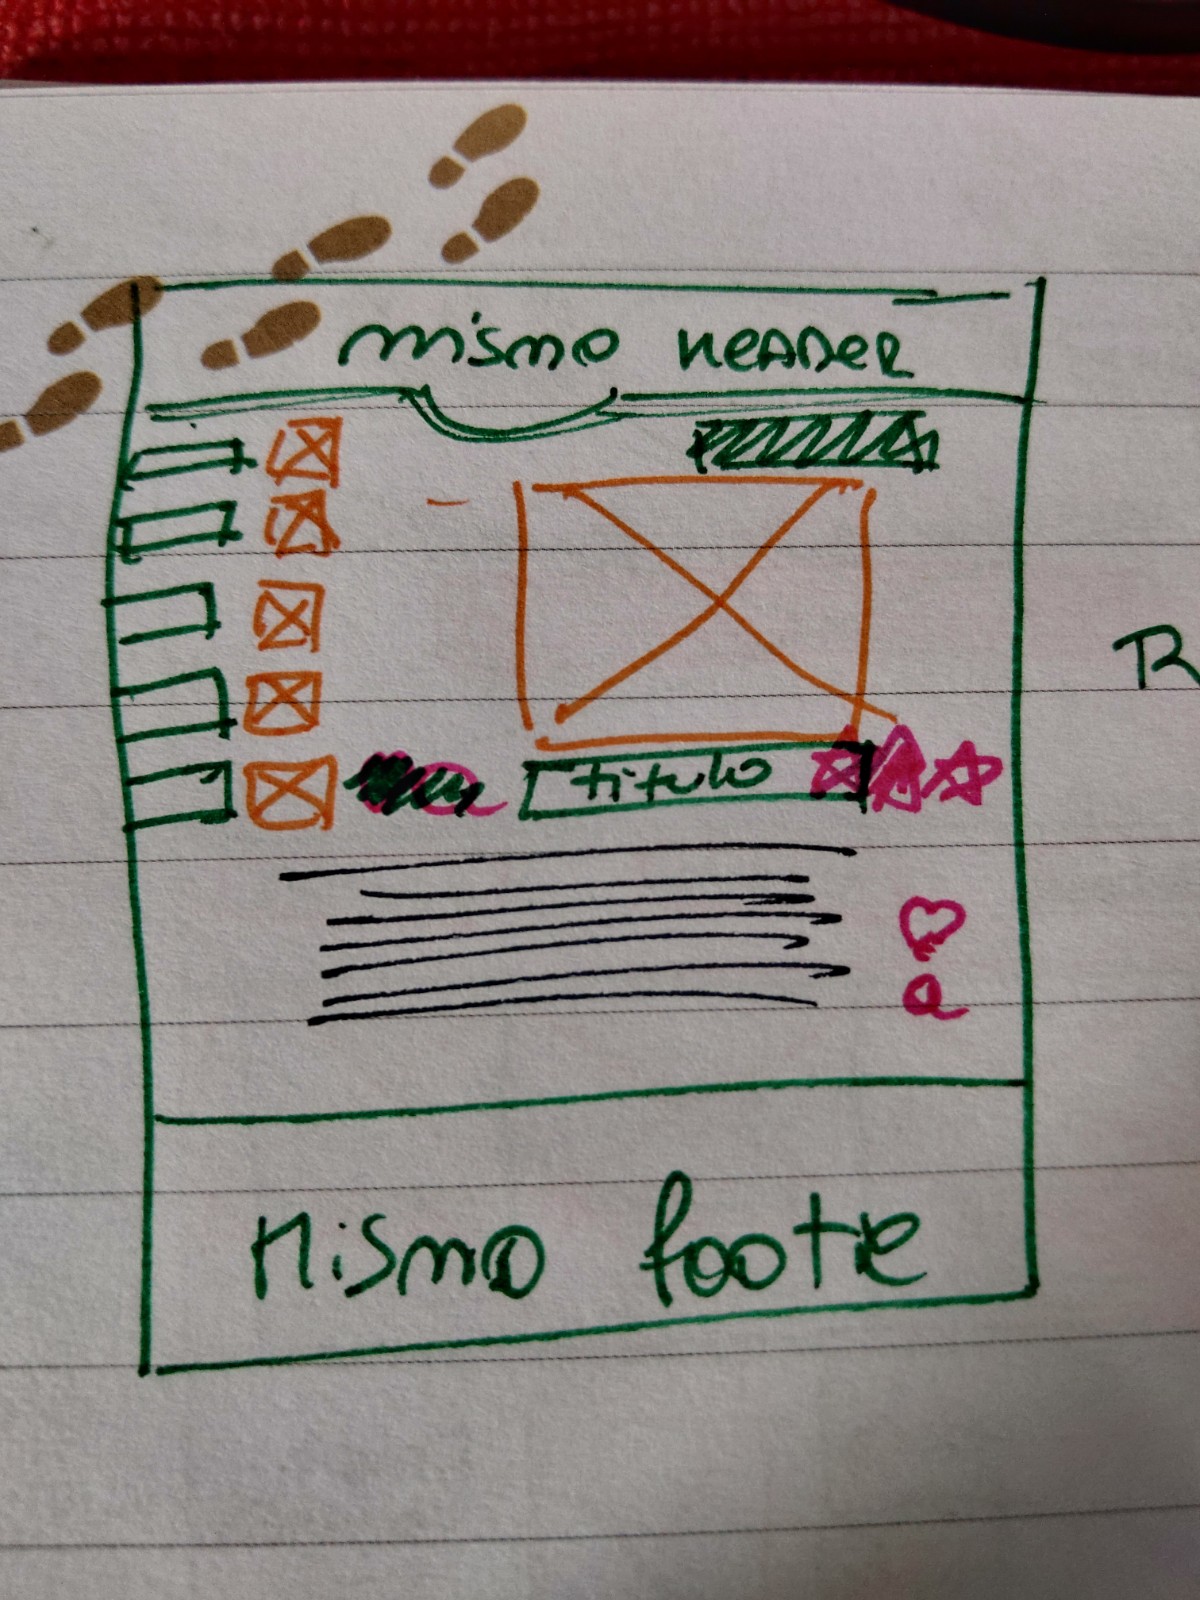 mismo HEADER
titulo
Mismo footer